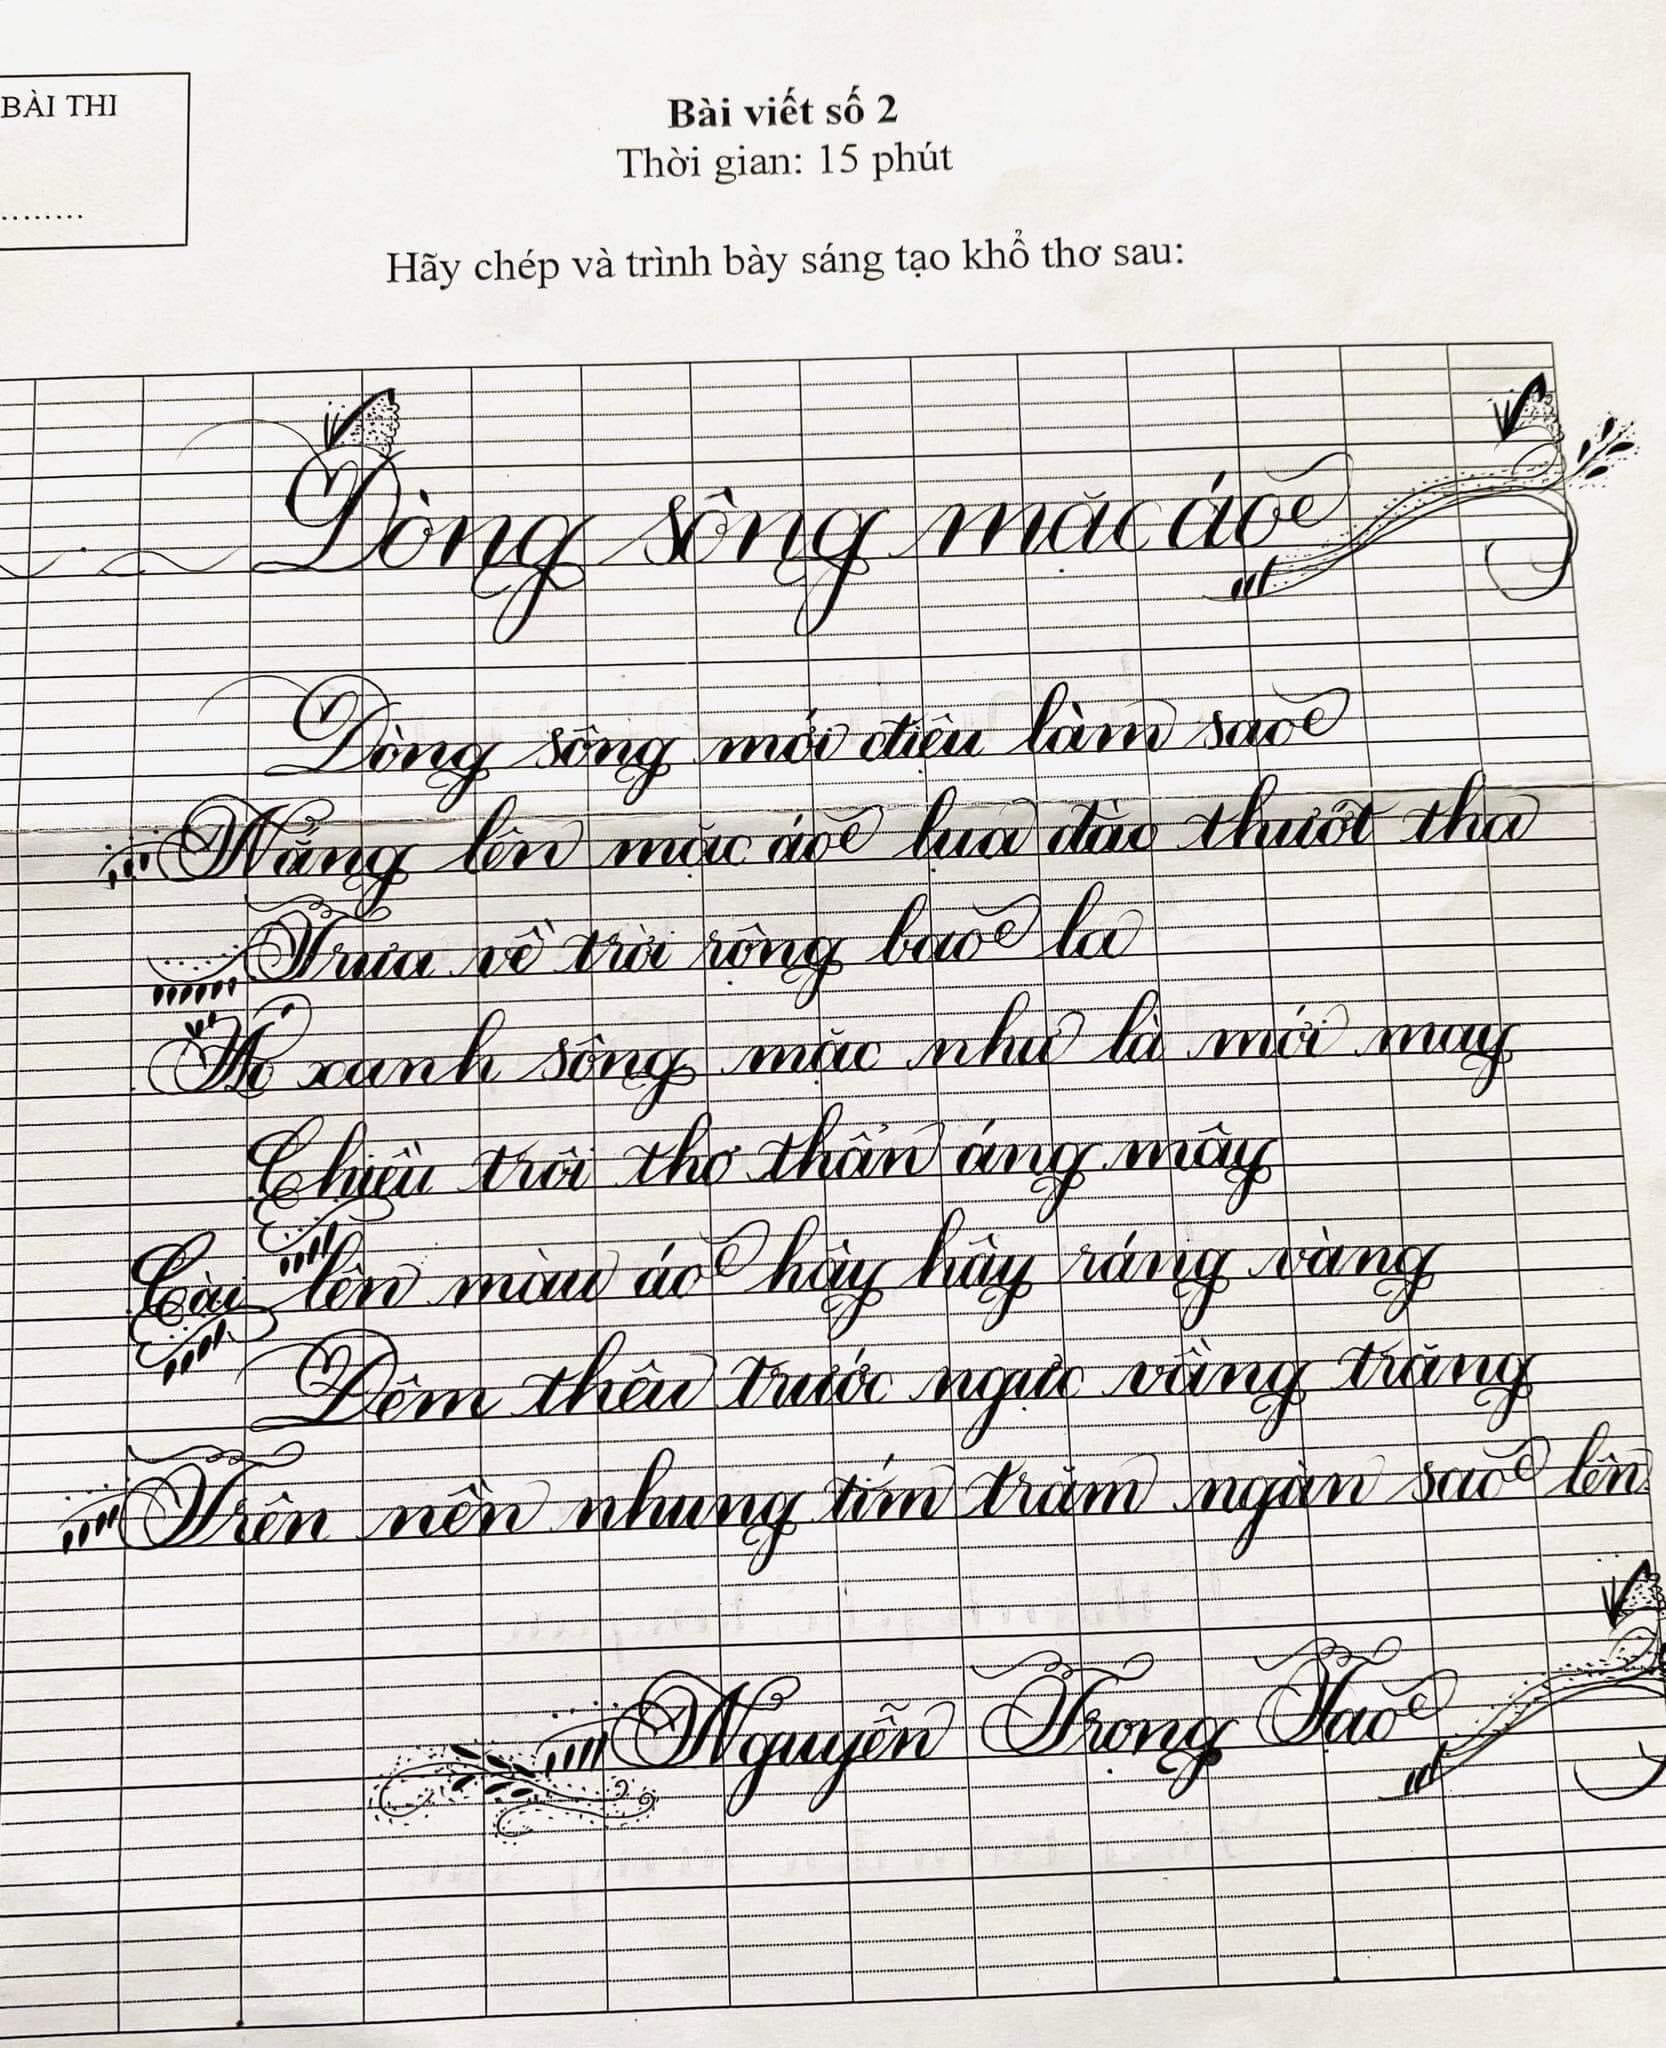 BÀI THI
.........
Bài viết số 2
Thời gian: 15 phút
Hãy chép và trình bày sáng tạo khổ thơ sau:
Dòng sông mặc áo
Dòng sông mới điệu làm sao
Nắng lên mặc áo lụa đào thướt tha
Trưa về trời rộng bao la
Áo xanh sông mặc như là mới may
Chiều trôi thơ thẩn áng mây
Cài lên màu áo hây hây ráng vàng
Đêm thêu trước ngực vầng trăng
Trên nền nhung tím trăm ngàn sao lên.
Nguyễn Trọng Tạo